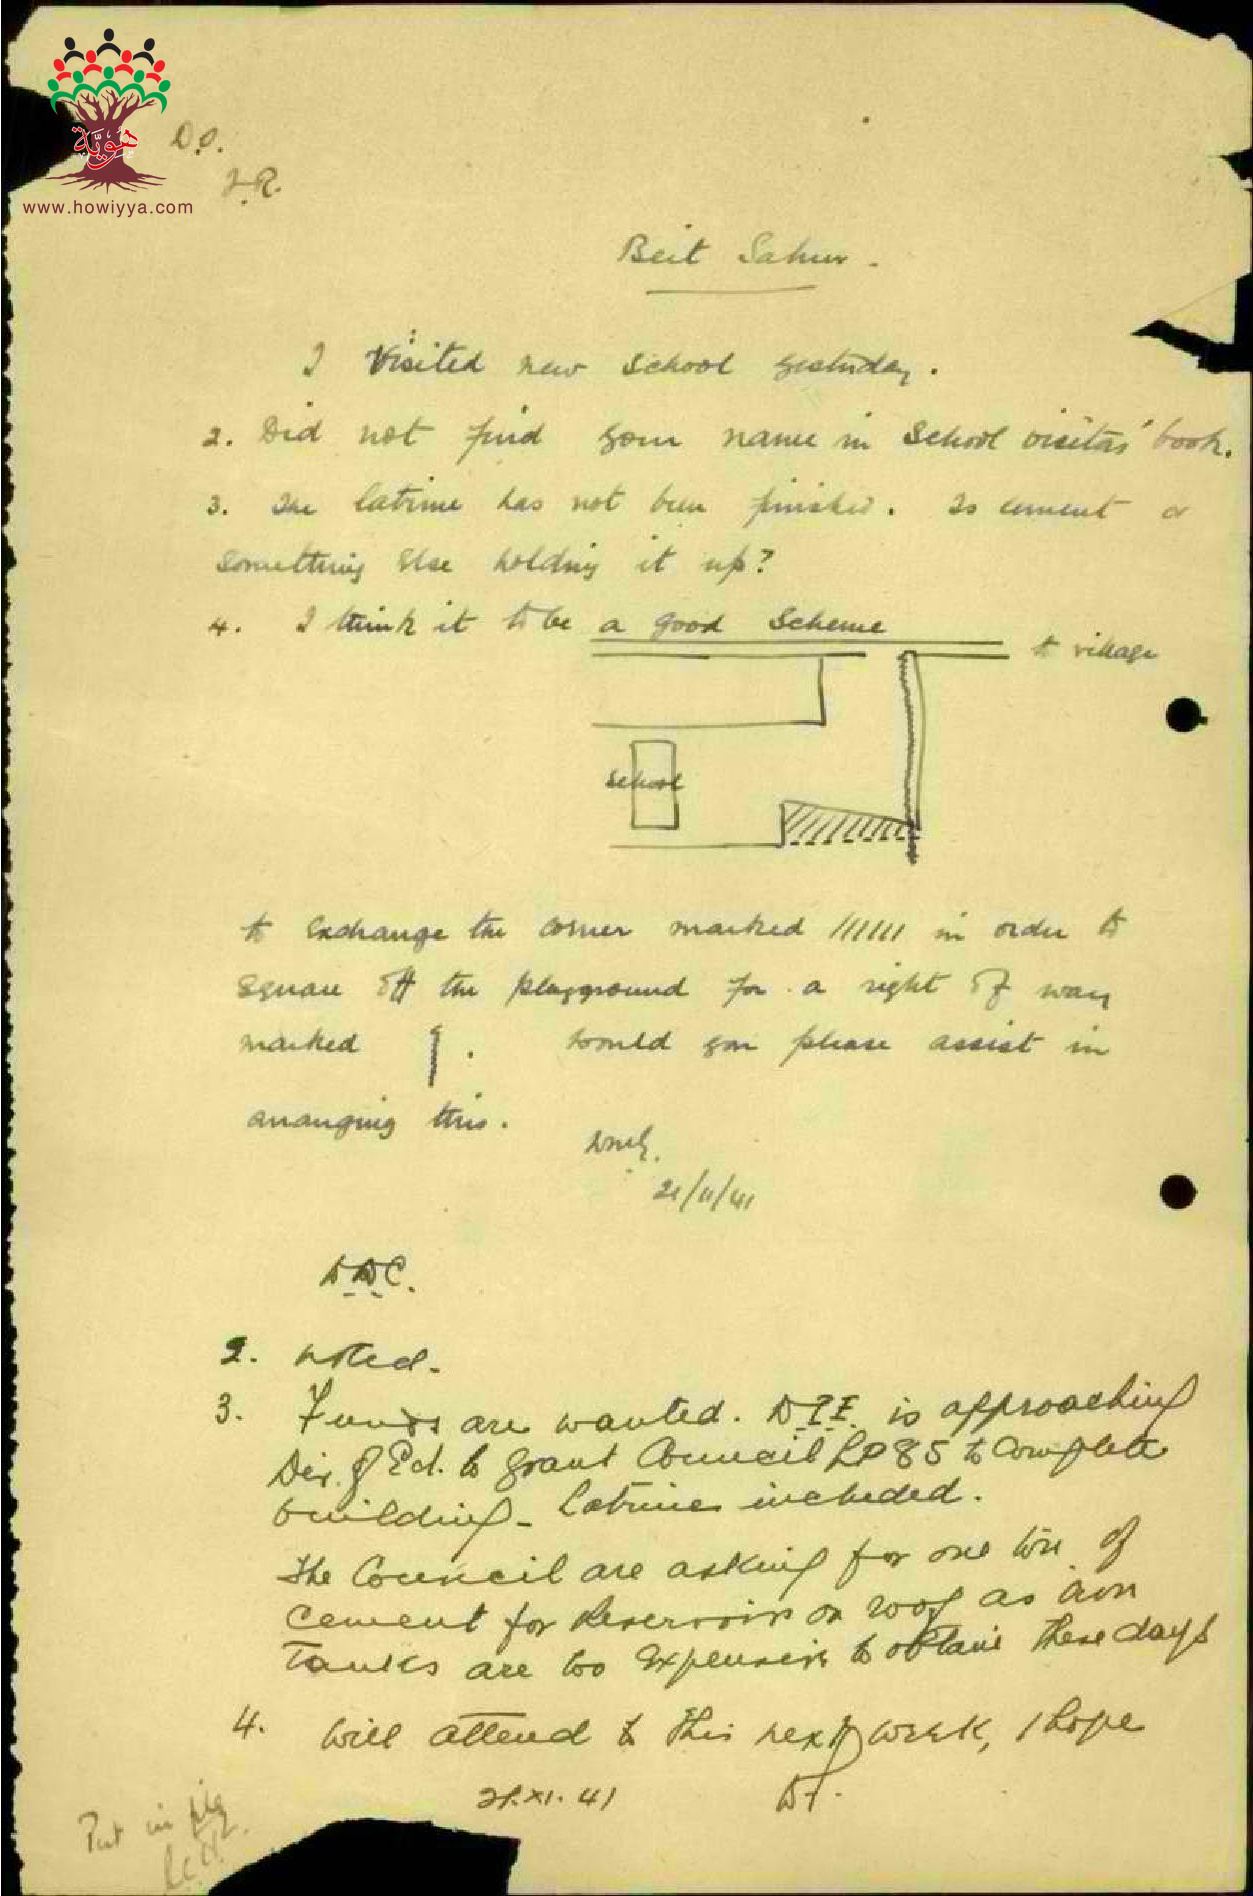 هوية
www.howiyya.com
D.O.
J.R.
Beit Sahur.
I visited new school yesterday.
2. Did not find your name in school visitors' book.
3. The latrine has not been finished. Is cement or
something else holding it up?
4. I think it to be a good scheme
to village
School
to exchange the corner marked ////// in order to
square off the playground for a right of way
marked . Would you please assist in
arranging this.
21/11/41
A.D.C.
2. Noted.
3. Funds are wanted. D.I.E. is approaching
Dir. of Ed. to grant Council LP 85 to complete
building - Latrines included.
The Council are asking for one ton of
cement for Reservoir on roof as iron
Tanks are too expensive to obtain these days
4. Will attend to this next week, I hope
21.XI.41
Put in file